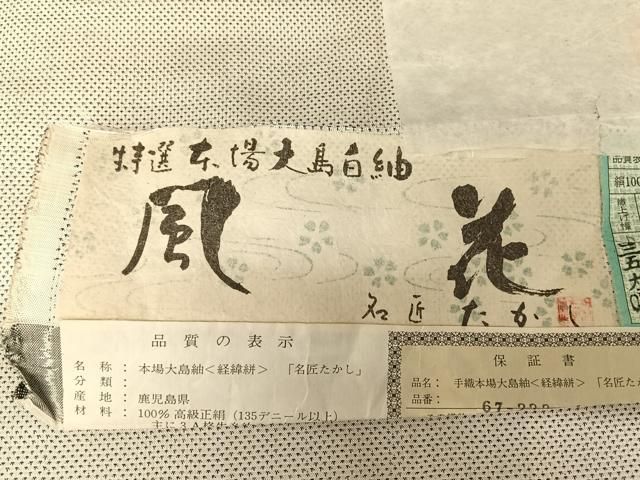 特選 本場大島白紬
風花
名匠 たかし
品質の表示
名称：本場大島紬＜経緯絣＞「名匠たかし」
分類：
産地：鹿児島県
材料：100％高級正絹（135デニール以上）
保証書
品名：手織本場大島紬＜経緯絣＞「名匠た
品番：
67
絹100